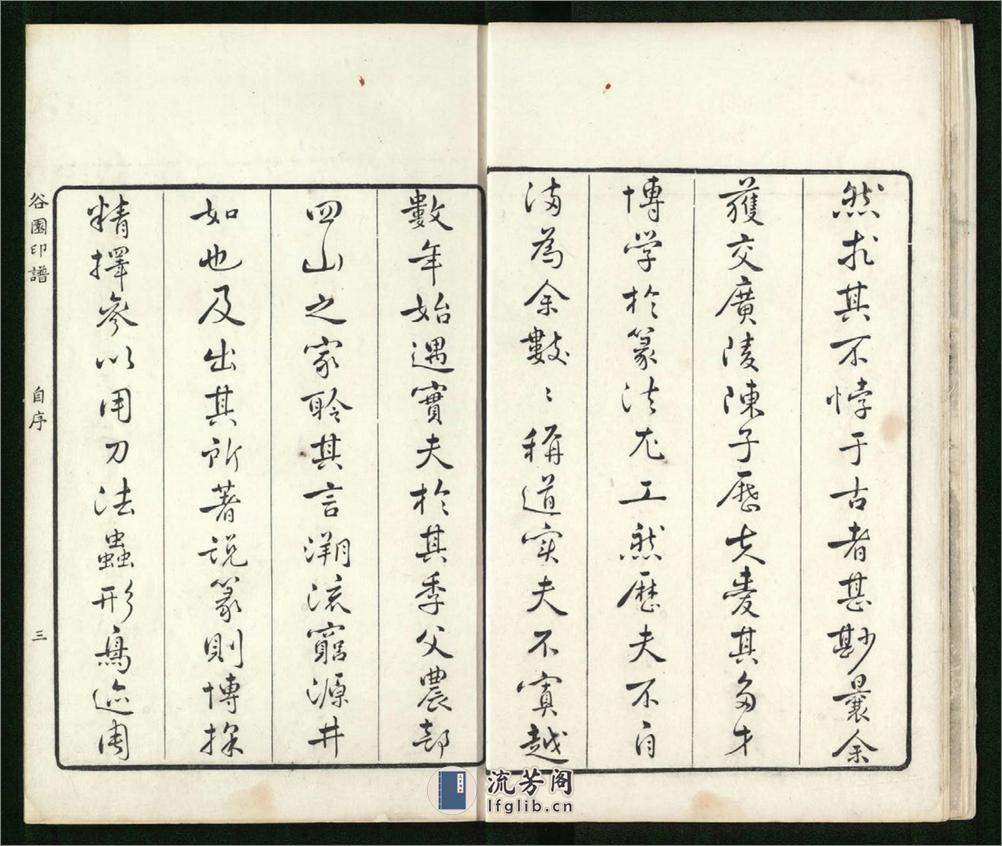 然求其不悖于古者甚尠曩余
獲交廣陵陳子歷夫愛其多才
博学於篆法尤工然歷夫不自
满為余數〻稱道实夫不寘越
數年始遇實夫於其季父農部
四山之家聆其言溯流窮源井
如也及出其所著说篆則博採
精擇參以用刀法蟲形鳥迹周
谷園印譜
自序
三
流芳阁
lfglib.cn